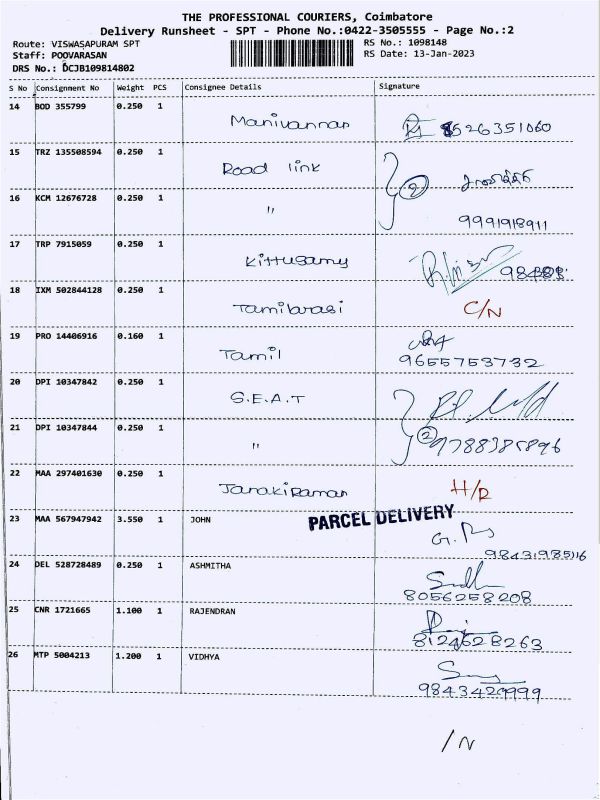 THE PROFESSIONAL COURIERS, Coimbatore
Delivery Runsheet - SPT - Phone No.:0422-3505555 - Page No.:2
Route: VISWASAPURAM SPT RS No.: 1098148
Staff: POOVARASAN RS Date: 13-Jan-2023
DRS No.: DCJB109814802
S No Consignment No Weight PCS Consignee Details Signature
14 BOD 355799 0.250 1
Manivannan 8526351060
15 TRZ 135508594 0.250 1
Road link 2
16 KCM 12676728 0.250 1
" 9991918911
17 TRP 7915059 0.250 1
Kittusamy
18 IXM 502844128 0.250 1
Tamilarasi C/N
19 PRO 14406916 0.160 1
Tamil 9655753732
20 DPI 10347842 0.250 1
S.E.A.T
21 DPI 10347844 0.250 1
" 2 9788385896
22 MAA 297401630 0.250 1
Janakiraman H/R
23 MAA 567947942 3.550 1 JOHN PARCEL DELIVERY
24 DEL 528728489 0.250 1 ASHMITHA
8056258208
25 CNR 1721665 1.100 1 RAJENDRAN
8124628263
26 MTP 5004213 1.200 1 VIDHYA
9843420999
/N